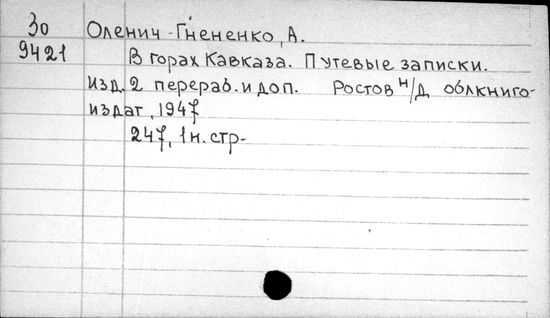 30 Оленич-Гнененко, А.
9421 В горах Кавказа. Путевые записки.
Изд. 2 перераб. и доп. Ростов н/Д облкниго-
издат, 1947
247, 1 н. стр.